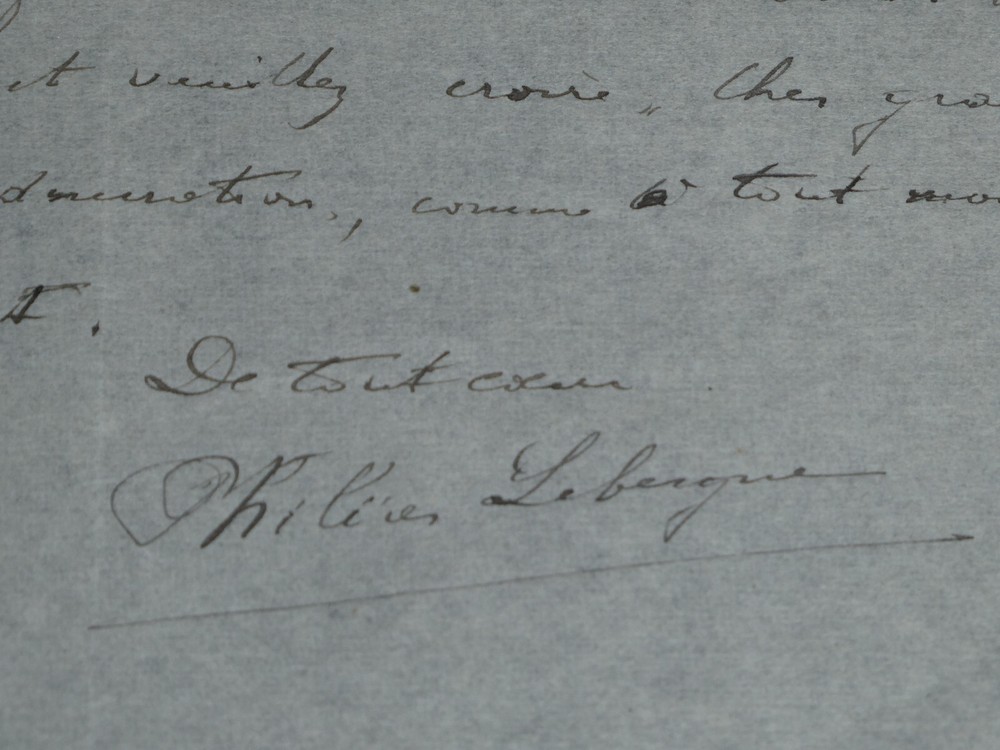 et veuillez croire, cher gra
dmiration, comme à tout mo
t.
De tout coeur.
Philéas Lebesgue